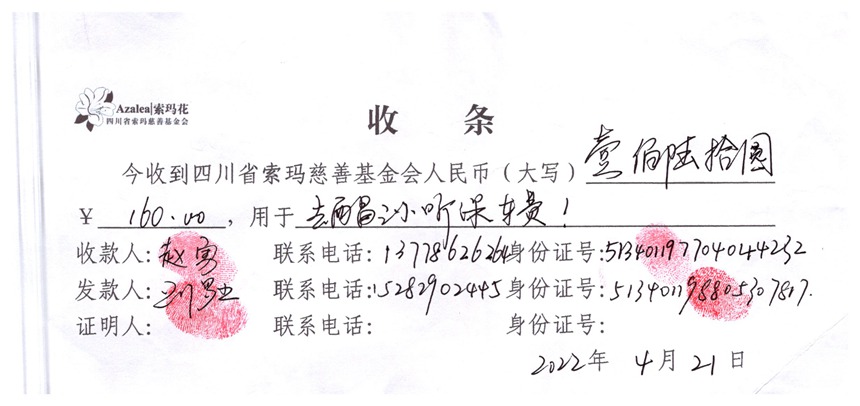 Azalea|索玛花
四川省索玛慈善基金会
收 条
今收到四川省索玛慈善基金会人民币（大写）壹佰陆拾圆
￥ 160.00 ，用于去西昌 听课车费！
收款人：赵 联系电话：13778626264身份证号：513401197704044232
发款人：刘 联系电话：15282902445身份证号：513401198805307817.
证明人： 联系电话： 身份证号：
2022年 4月21日